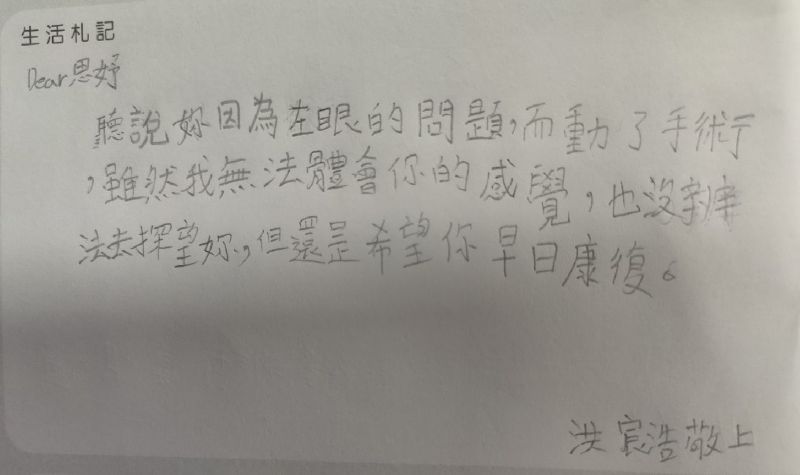 生活札記
Dear思妤
聽說妳因為左眼的問題,而動了手術
,雖然我無法體會你的感覺,也沒辦
法去探望妳,但還是希望你早日康復。
洪宸浩敬上